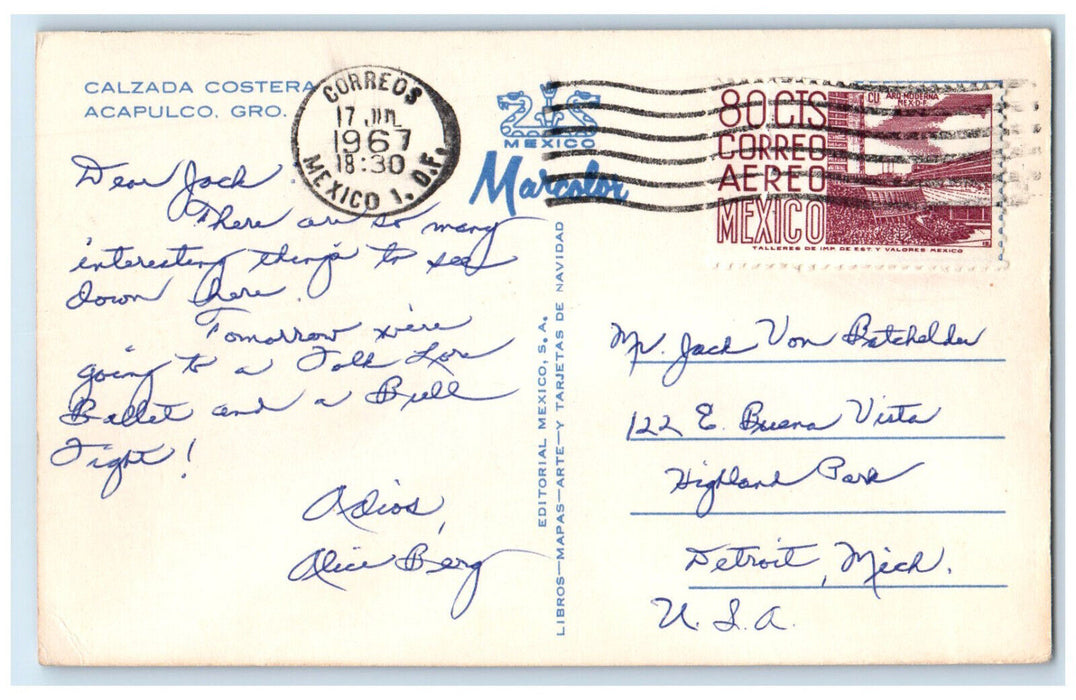 CALZADA COSTERA
ACAPULCO. GRO.
CORREOS
17 JUL
1967
18:30
MEXICO 1, D.F.
MEXICO
Marcolor
80 CTS
CORREO
AEREO
MEXICO
CU ARQ MODERNA
MEX. D.F.
TALLERES DE IMP. DE EST. Y VALORES MEXICO
Dear Jack
There are so many
interesting things to see
down here.
Tomorrow we're
going to a Folk Lore
Ballet and a Bull
Fight!
Adios,
Alice Berg
EDITORIAL MEXICO, S. A.
LIBROS—MAPAS—ARTE—Y TARJETAS DE NAVIDAD
Mr. Jack Von Batchelder
122 E. Buena Vista
Highland Park
Detroit, Mich.
U. S. A.